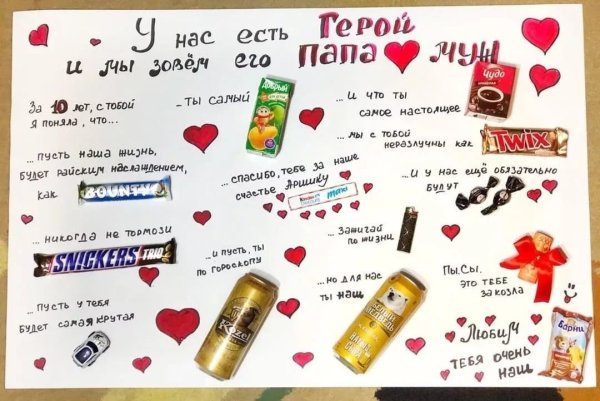 У нас есть Герой
и мы зовём его папа муж
За 10 лет, с тобой
я поняла, что...
– ты самый
Добрый
... и что ты
самое настоящее
Чудо
...пусть наша жизнь,
будет райским наслаждением,
как
BOUNTY
...спасибо, тебе за наше
счастье Аришку
Kinder
maxi
... мы с тобой
неразлучны как
Twix
...и у нас ещё обязательно
будут
...никогда не тормози
SNICKERS TRIO
...и пусть, ты
по гороскопу
Kozel
... Зажигай
по жизни
...но для нас
ты наш
Пы.Сы.
это тебе
за козла
...пусть у тебя
будет самая крутая
Любим
тебя очень
наш
Барни